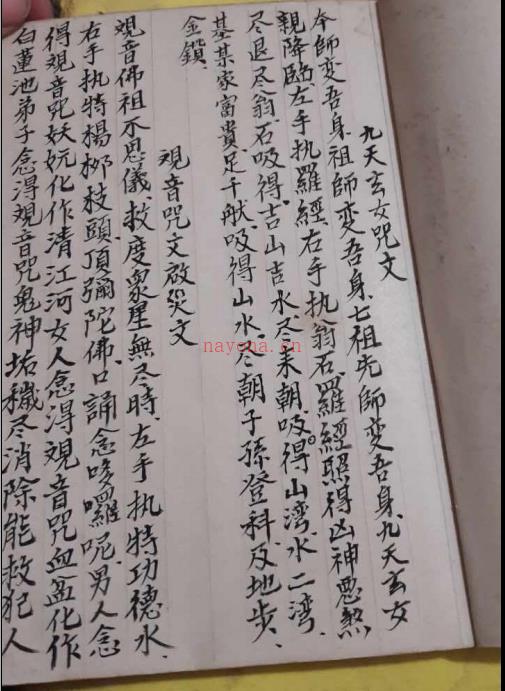 九天玄女咒文
本師變吾身、祖師變吾身、七祖先師變吾身、九天玄女
親降臨、左手执羅經、右手执翁石、羅經照得凶神惡煞
尽退尽、翁石吸得吉山吉水尽来朝、吸得山湾、水二湾、
某某家富貴、足千猷、吸得山水、尽朝子孫登科及地步、
金鎖、
觀音咒文啟災文
觀音佛祖不思儀、救度衆聖無尽時、左手执特功德水、
右手执特楊柳枝、頭頂彌陀佛、口誦念哆囉呢、男人念
得觀音咒妖妧化作清江河女人念得觀音咒血盆化作
白蓮池弟子念得觀音咒鬼神垢穢尽消除能救犯人
nayona.cn